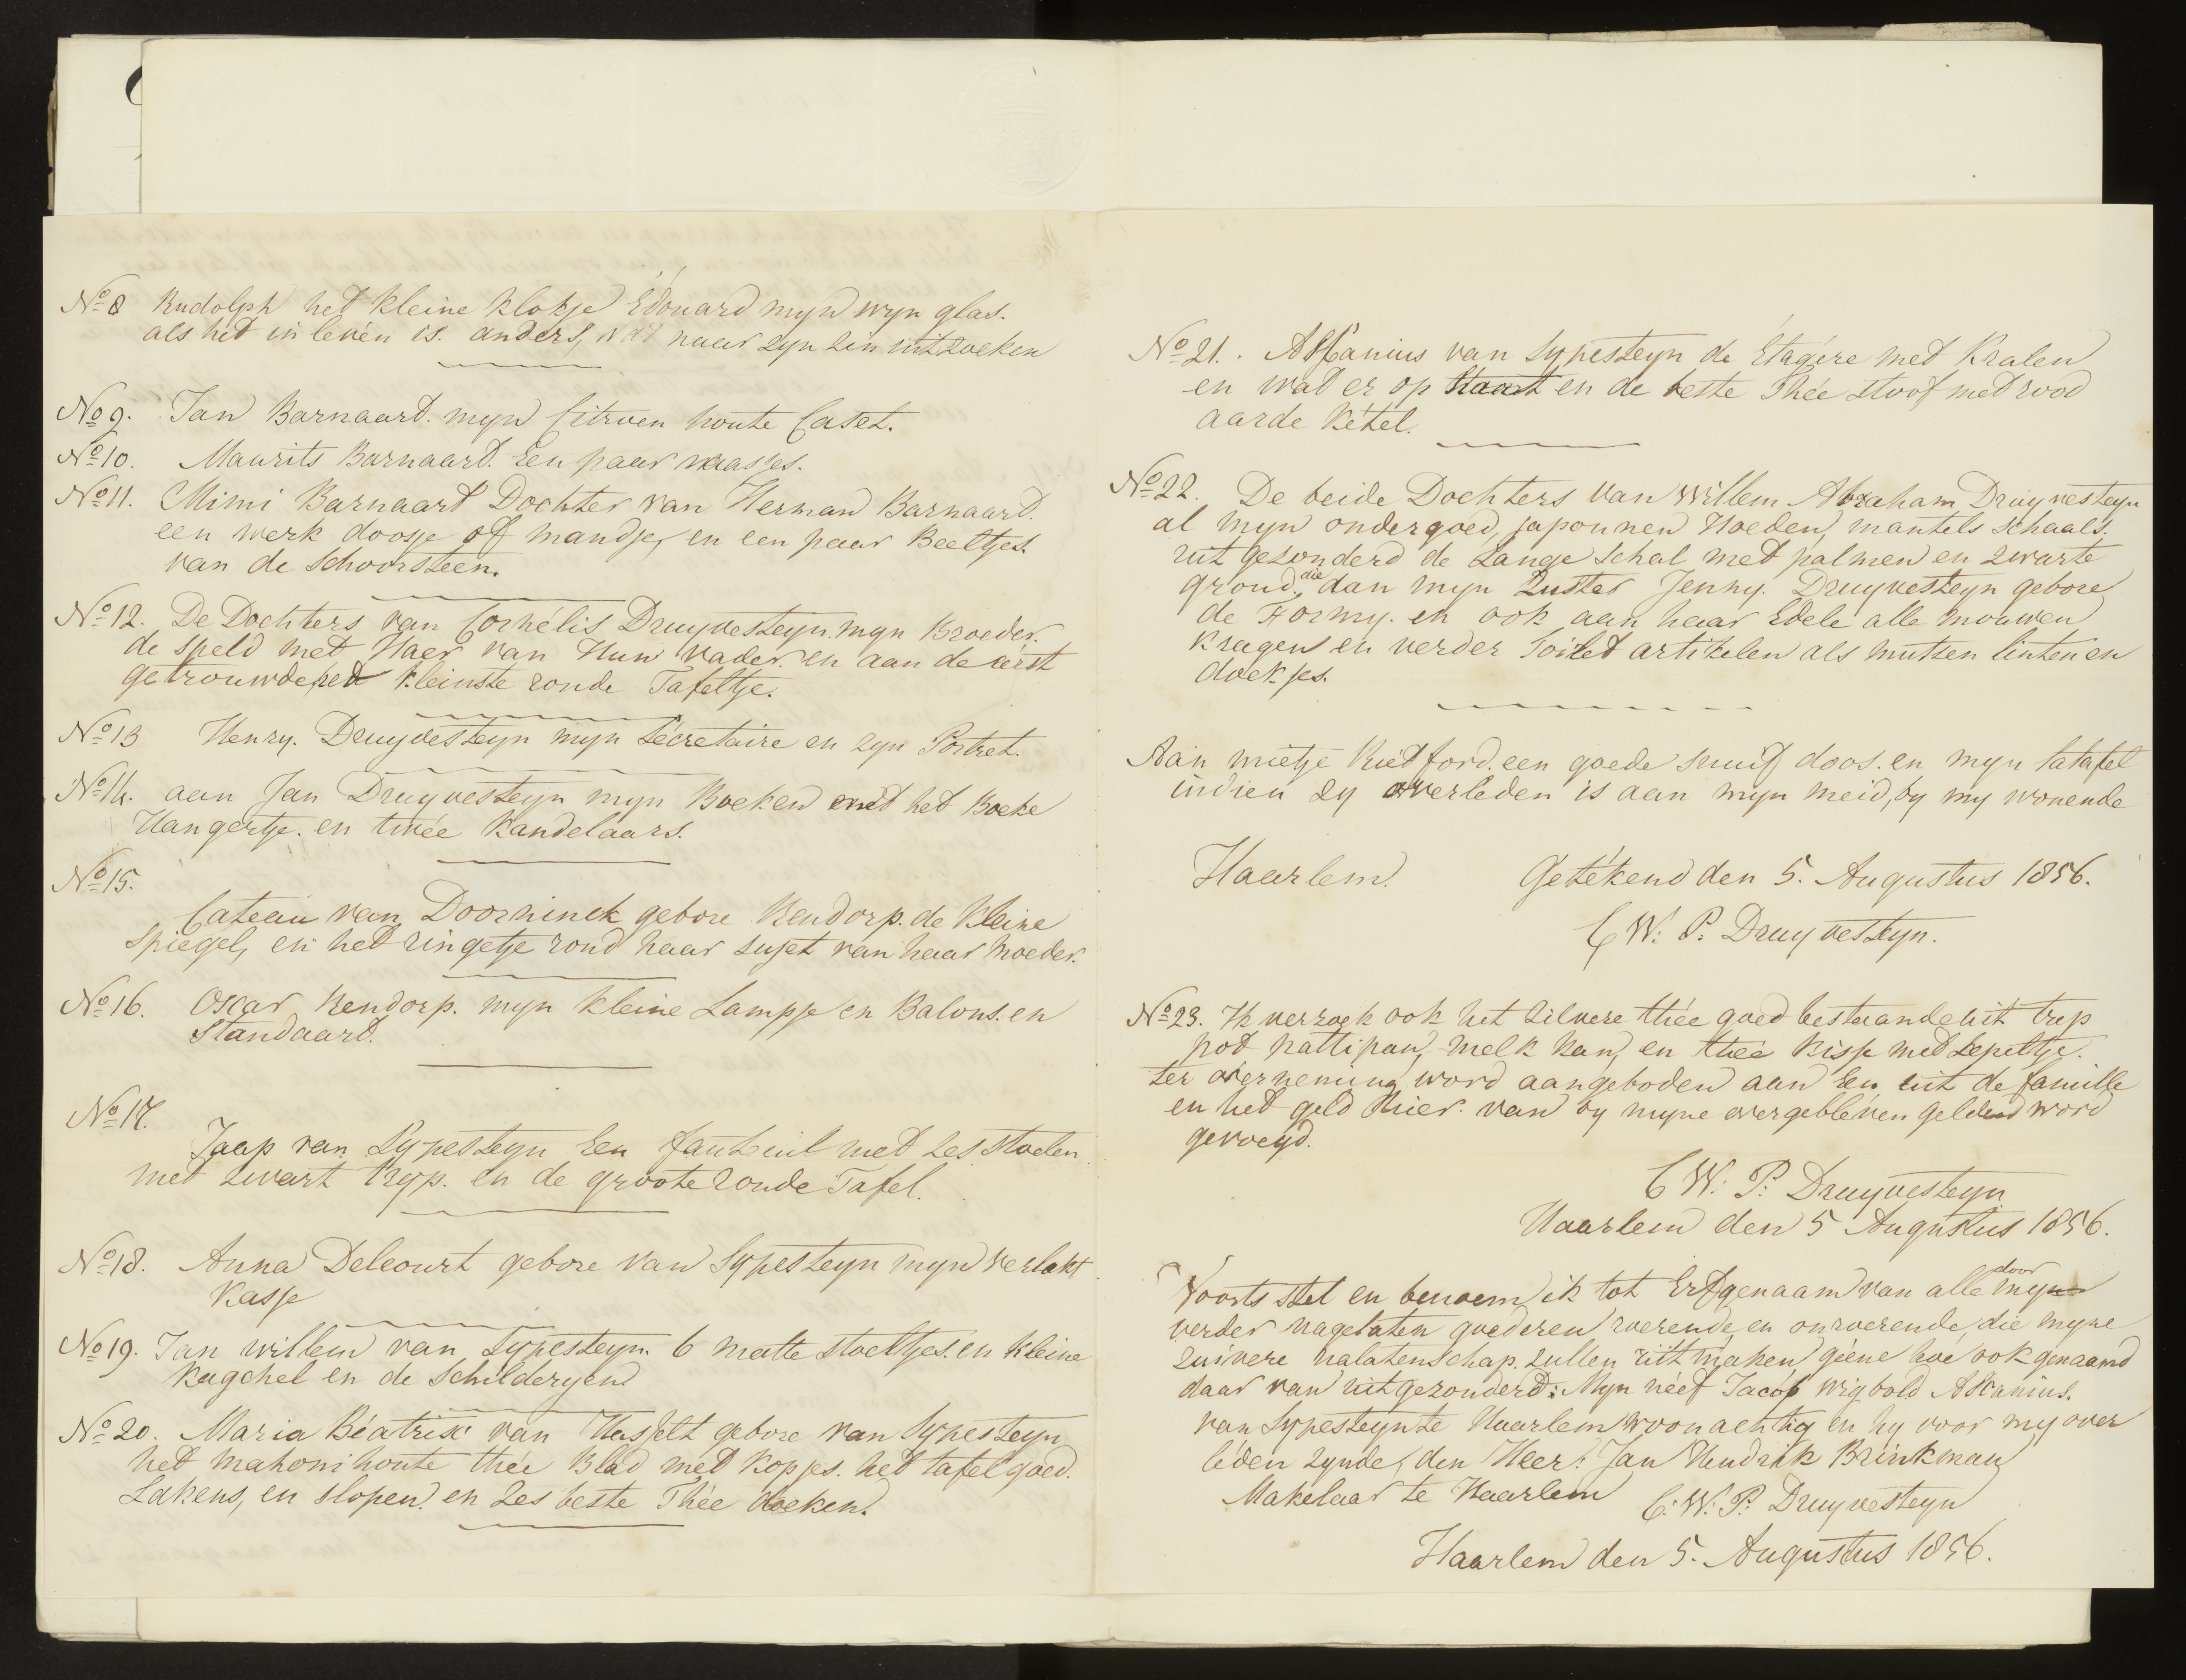 No 8 Rudolph het kleine klokje Edouard myn wyn glas.
als het in leven is. anders, wat naar zyn zin uitzoeken
No 9. Jan Barnaart. myn Citroen houte Caset.
No 10. Maurits Barnaart. Een paar vaasjes.
No 11. Mimi Barnaart Dochter van Herman Barnaart.
een werk doosje of mandje, en een paar Beeltjes.
van de schoorsteen.
No 12. De Dochters van Cornélis Druyvesteyn. myn Broeder.
de speld met Haer van Hun vader. en aan de eerst
getrouwde het kleinste ronde Tafeltje.
No 13 Henry. Druyvesteyn myn Sécretaire en zyn Portret.
No 14. aan Jan Druyvesteyn myn Boeken met het Boeke
Hangertje. en twée Kandelaars.
No 15.
Cateau van Doorninck gebore Rendorp. de kleine
spiegel, en het ringetje rond haar sujet van haar Moeder.
No 16. Oscar Rendorp. myn kleine Lampje en Balons. en
Standaart.
No 17.
Jaap van Sypesteyn Een fauteuil met zes stoelen
met zwart tryp. en de groote ronde Tafel.
No 18. Anna Delcourt gebore van Sypesteyn myn verlakt
Kasje
No 19. Jan willem van Sypesteyn. 6 matte stoeltjes. en kleine
kagchel en de Schilderyen
No 20. Maria Béatrix van Hasselt gebore van Sypesteyn
het mahoni houte thee Blad met kopjes. het tafel goed.
Lakens, en slopen. en zes beste Thée doeken.
No 21. Askanius van Sypesteyn de Étagére met Kralen
en wat er op staat en de beste Thée stoof med rood
aarde kétel.
No 22. De beide Dochters van Willem Abraham Druyvesteyn
al myn ondergoed, japonnen Hoeden, mantels schaals.
uit gezonderd de Lange schal met palmen en zwarte
grond. die dan myn Zuster Jenny. Druyvesteyn gebore
de Formy. en ook aan haar Edele alle mouwen
kragen en verder Toilet artikelen als mutsen linten en
doekjes.
Aan mietje een goede snuif doos. en myn latafel
indien zy overleden is aan myn meid, by my wonende
Haarlem. Getékend den 5. Augustus 1856.
C W: P: Druyvesteyn.
No 23. Ik verzoek ook het zilvere thée goed bestaande uit trep
pot pattipan, melk kan, en thée kisje med Lepeltje.
ter overneming word aangeboden aan Een uit de famille
en het geld hier van by myne overgebléven gelden word
gevoegd.
C W: P: Druyvesteyn
Haarlem den 5 Augustus 1856.
Voorts stel en benoem ik tot Erfgenaam van alle door myn
verder nagelaten goederen roerende en onroerende, die myne
zuivere nalatenschap. zullen uitmaken géene hoe ook genaamd
daar van uitgezonderd: Myn néef Jacob Wigbold Askanius.
van Sypesteyn te Haarlem woonachtig en hy voor my over
léden zynde, den Heer: Jan Hendrik Brinkman
Makelaar te Haarlem C: W: P: Druyvesteyn
Haarlem den 5. Augustus 1856.